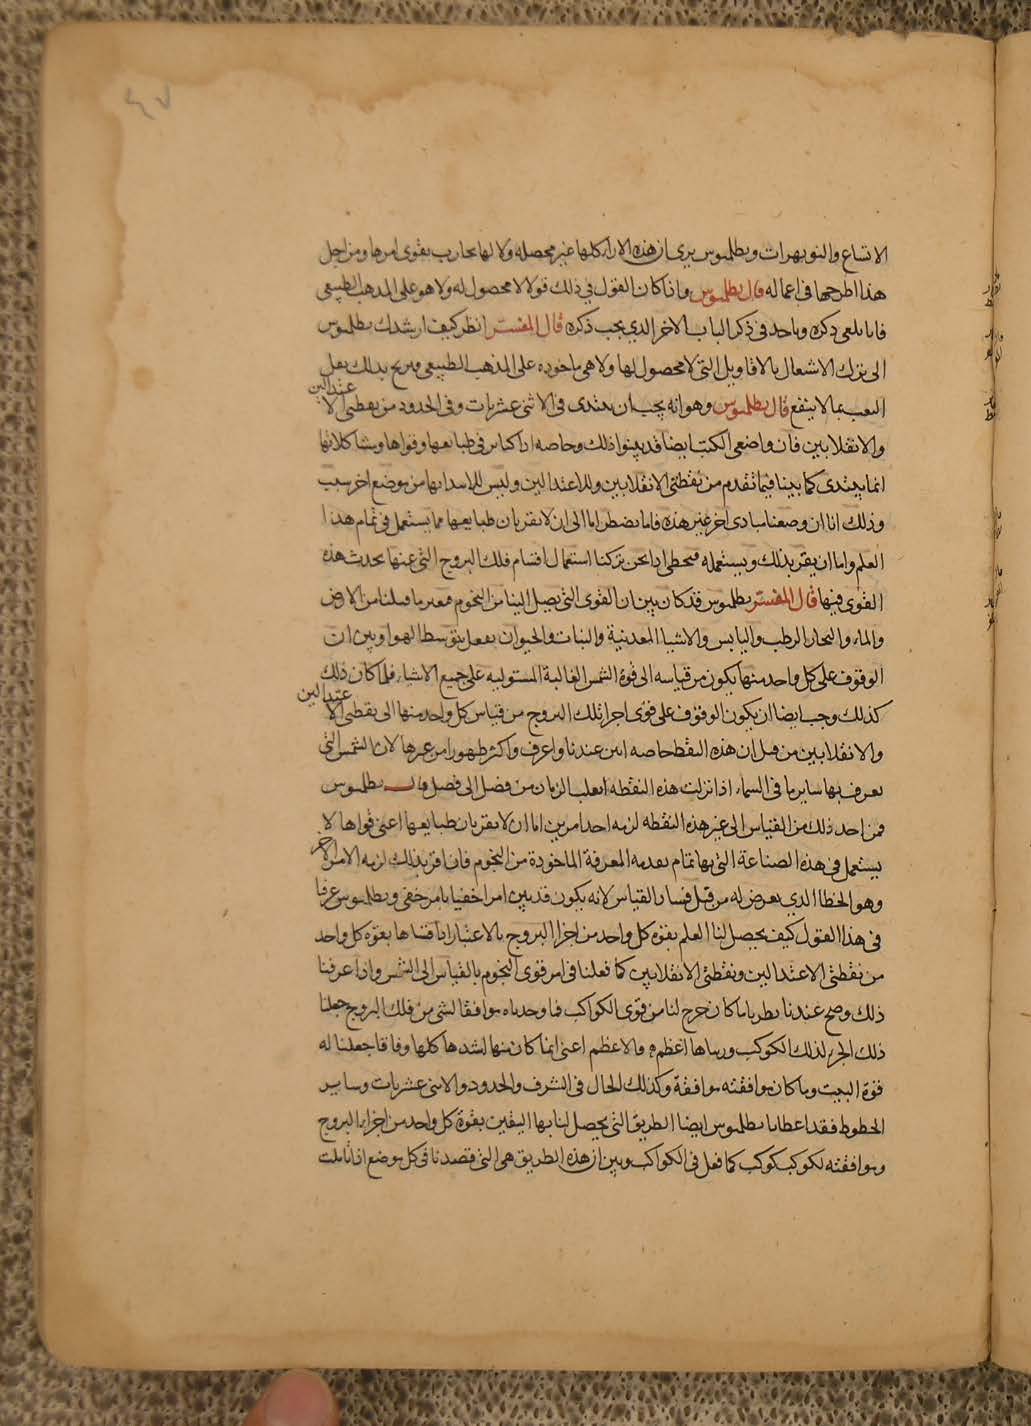 ٤٧
الاتساع والنوبهرات وبطلميوس يرى ان هذه الاراء كلها غير محصله ولا لها تجارب يقوى امرها ومن اجل
هذا اطرحها في اعماله قال بطلميوس وما كان القول في ذلك قولا لا محصول له ولا هو على المذهب الطبيعي
فانا نلغي ذكره وناخذ في ذكر الباب الاخر الذي يجب ذكره قال المفسر انظر كيف ارشدك بطلميوس
الى ترك الاشتغال بالاقاويل التي لا محصول لها ولا هي ماخوذه على المذهب الطبيعي ومريح بذلك
التعب بما لا ينتفع قال بطلميوس وهو انه يجب ان نبتدى في الاثنى عشريات وفي الحدود من نقطتي الاعتدالين
والانقلابين فان واضعي الكتب ايضا قد بينوا ذلك وخاصه اذ كنا نرى طبايعها وقواها ومشاكلاتها
انما يبتدى كما بينا فيما تقدم من نقطتي الانقلابين والاعتدالين وليس للابتدا بها من موضع اخر سبب
وذلك انا ان وضعنا مبادى اخر غير هذه فاما نضطر اما الى ان لا نقر بان طبايعها مما يستعمل في تمام هذا
العلم واما ان نقر بذلك ونستعمله فنخطى اذا نحن تركنا استعمال اقسام فلك البروج التي عنها يحدث هذه
القوى فيها قال المفسر بطلميوس قد كان بين ان القوى التي يصل الينا من النجوم فتغير ما قبلنا من الارض
والماء والبخار الرطب واليابس والاشيا المعدنية والنبات والحيوان يفعل بتوسط الهوا وبين ان
الوقوف على كل واحد منها يكون من قياسه الى قوة الشمس الغالبة المستوليه على جميع الاشياء فلما كان ذلك
كذلك وجب ايضا ان يكون الوقوف على قوى اجزا فلك البروج من قياس كل واحد منها الى نقطتي الاعتدالين
والانقلابين من قبل ان هذه النقط خاصه ابين عندنا واعرف واكثر ظهورا من غيرها لان الشمس التي
يعرف بها ساير ما في السماء اذا نزلت هذه النقطه انقلب الزمان من فصل الى فصل قال بطلميوس
فمن اخذ ذلك من القياس الى غير هذه النقطه لزمه احد امرين اما ان لا يقر بان طبايعها اعنى قواها لا
يستعمل في هذه الصناعة التي بها تمام تقدمه المعرفة الماخوذة من النجوم فان اقر بذلك لزمه الامر الاخر
وهو الخطا الذي يعرض له من قبل فساد القياس لانه يكون قد بين امرا خفيا بامر خفي وبطلميوس عرفنا
في هذا القول كيف يحصل لنا العلم بقوة كل واحد من اجزا البروج بالاعتبار اذا قسناها بقوة كل واحد
من نقطتي الاعتدالين ونقطتي الانقلابين كما فعلنا في امر قوى النجوم بالقياس الى الشمس واذا عرفنا
ذلك وصح عندنا نظرنا ما كان خرج لنا من قوى الكواكب فما وجدناه موافقا لشي من فلك البروج جعلنا
ذلك الجزء لذلك الكوكب وربناها اعظم والاعظم اعنى انما كان منها اشدها كلها وفاقا جعلنا له
قوة البيت وما كان موافقته موافقة وكذلك الحال في الشرف والحدود والاثنى عشريات وساير
الحظوظ فقد اعطانا بطلميوس ايضا الطريق التي يحصل لنا بها اليقين بقوة كل واحد من اجزاء البروج
وموافقته لكوكب كوكب كما فعل في الكواكب وبين ان هذه الطريق هي التي قصدنا في كل موضع اذا تاملت